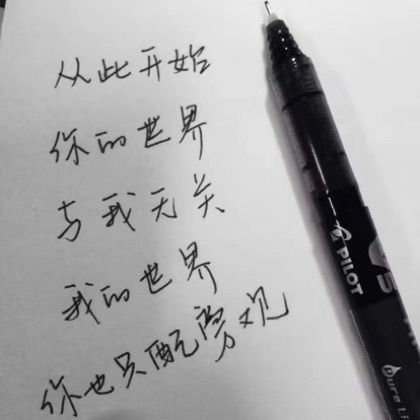 从此开始
你的世界
与我无关
我的世界
你也只配旁观
PILOT
V5
Pure Li